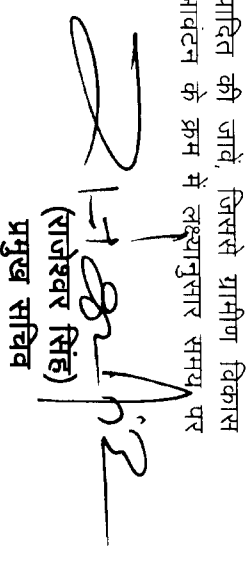 पादित की जावे, जिससे ग्रामीण विकास
आवंटन के क्रम में लक्ष्यानुसार समय पर
(राजेश्वर सिंह)
प्रमुख सचिव